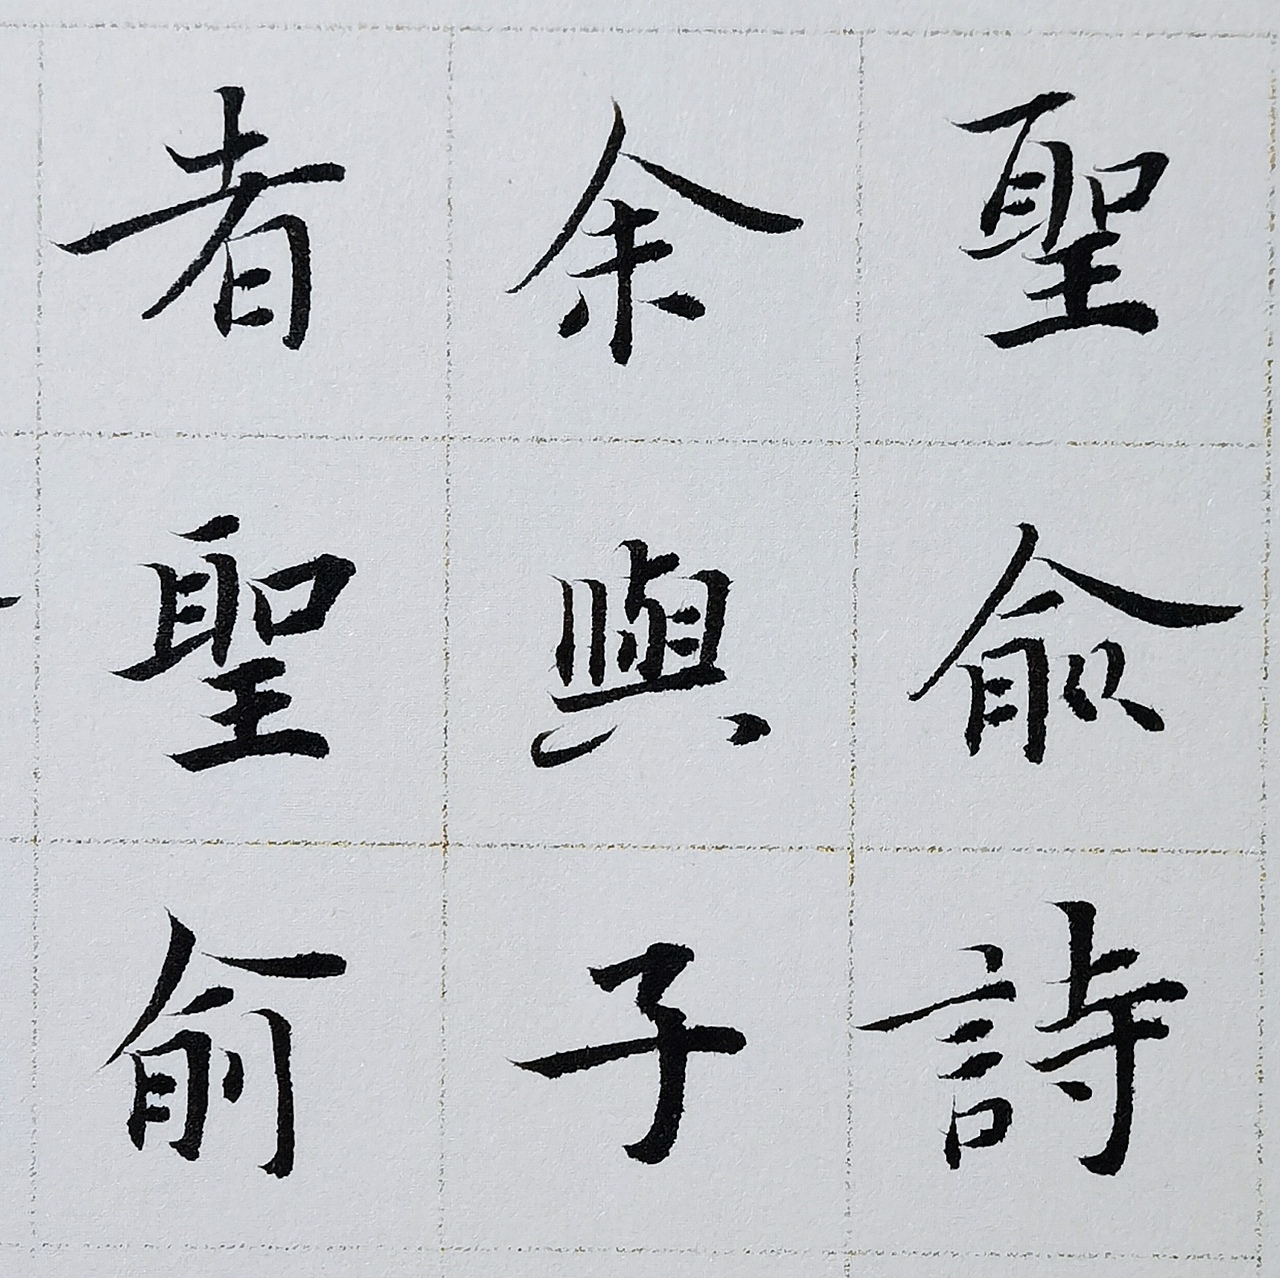 聖兪詩
余與子
者聖俞